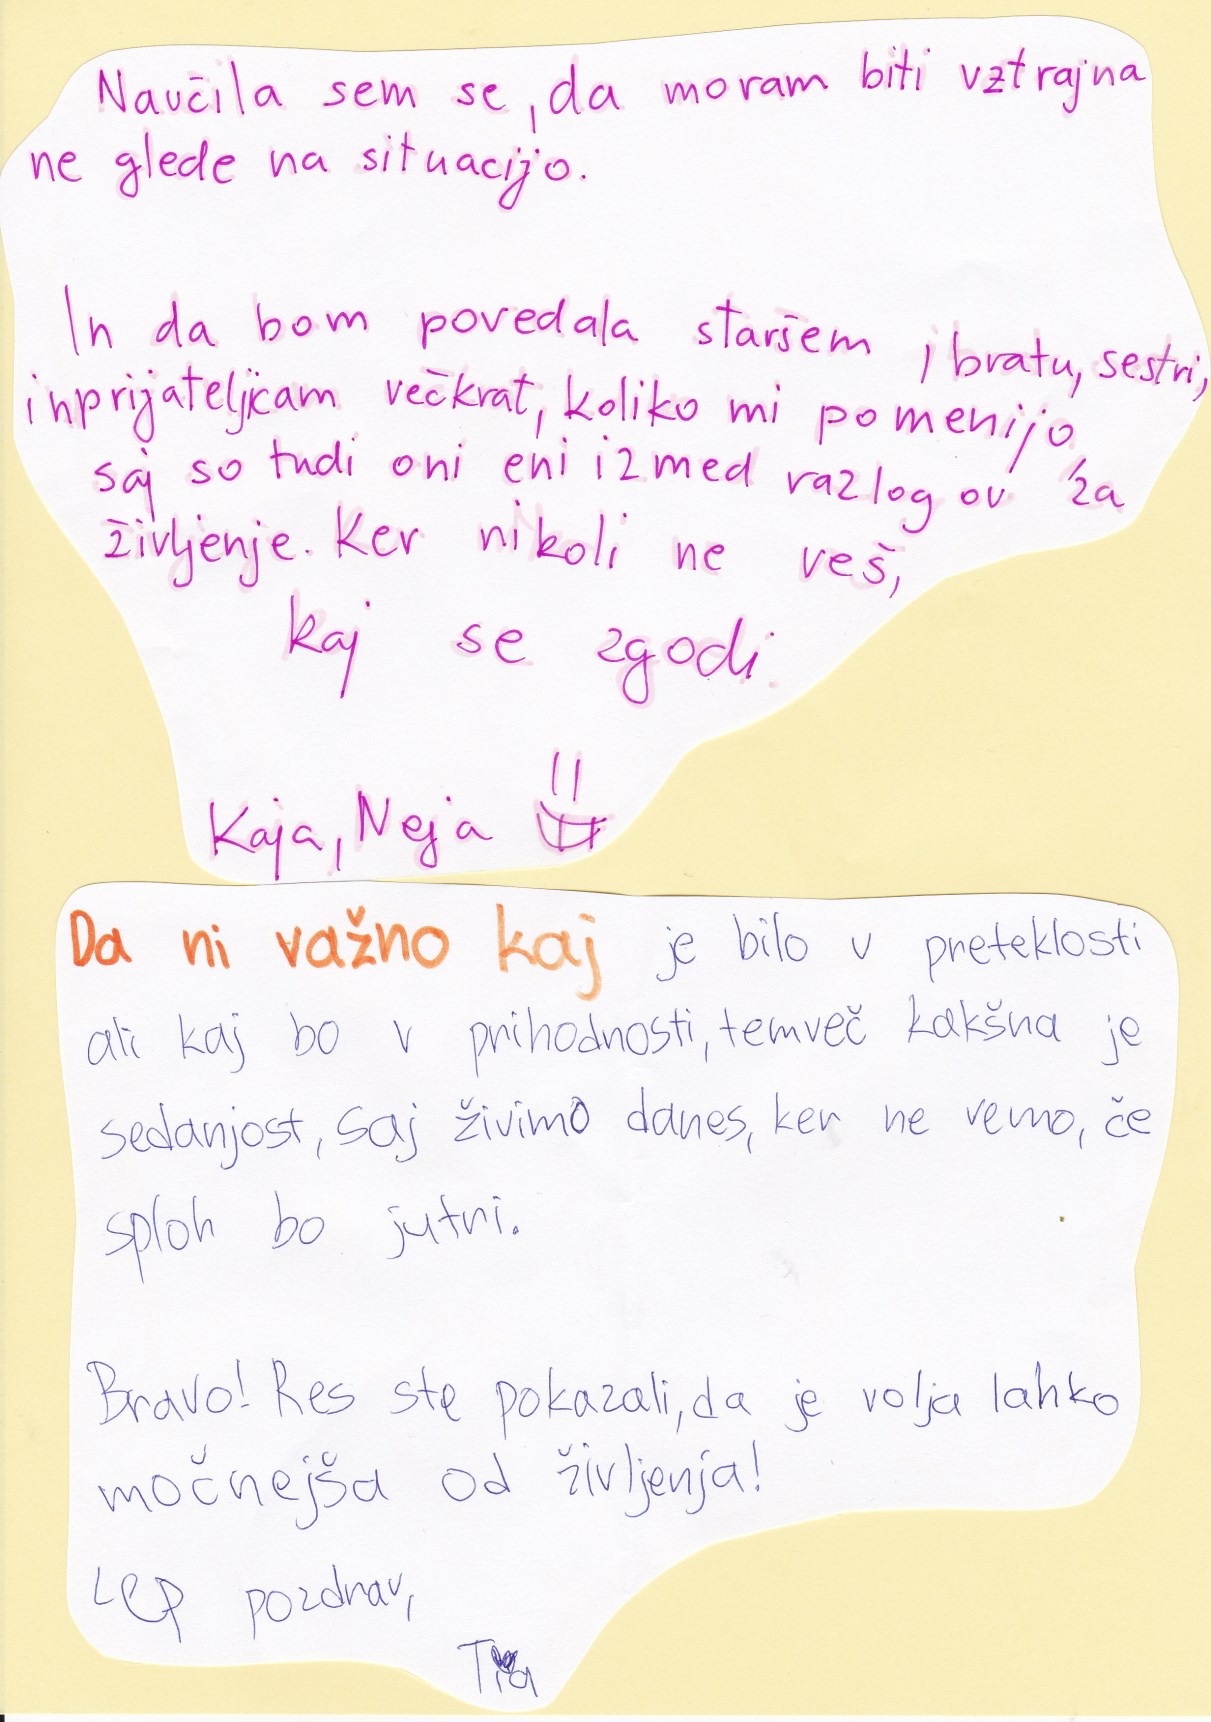 Naučila sem se, da moram biti vztrajna
ne glede na situacijo.
In da bom povedala staršem, bratu, sestri,
in prijateljicam večkrat, koliko mi pomenijo,
saj so tudi oni eni izmed razlogov za
življenje. Ker nikoli ne veš,
kaj se zgodi.
Kaja, Neja
Da ni važno kaj je bilo v preteklosti
ali kaj bo v prihodnosti, temveč kakšna je
sedanjost, saj živimo danes, ker ne vemo, če
sploh bo jutri.
Bravo! Res ste pokazali, da je volja lahko
močnejša od življenja!
Lep pozdrav,
Tia